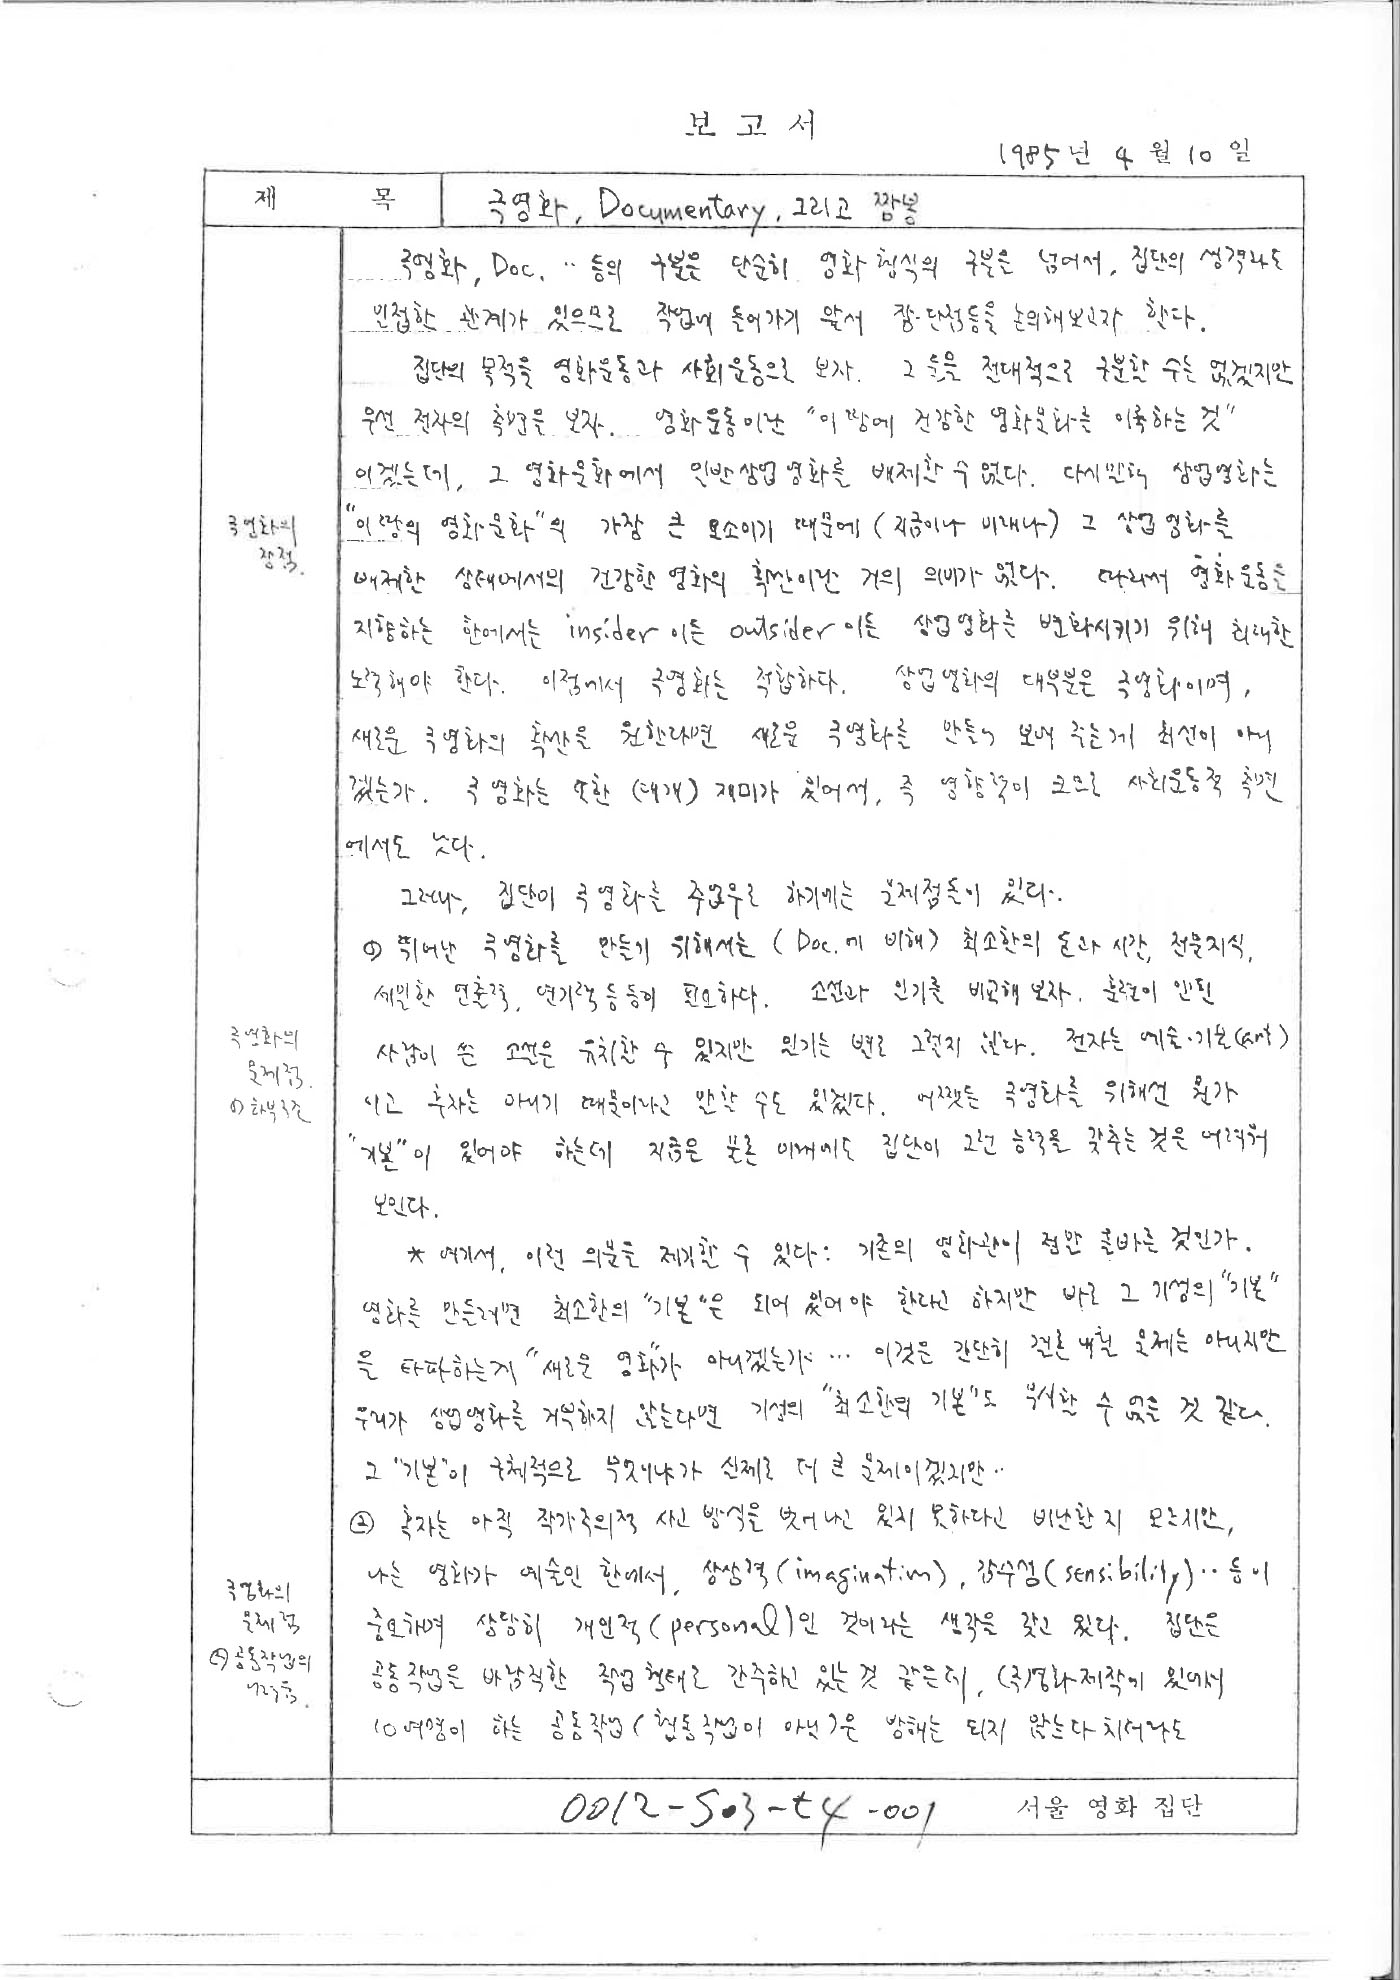 보고서
1985년 4월 10일
제 목
극영화, Documentary, 그리고 짬뽕
극영화, Doc. ‥ 등의 구분은 단순히 영화 형식의 구분을 넘어서, 집단의 성격과도
밀접한 관계가 있으므로 작업에 들어가기 앞서 장·단점등을 논의해보고자 한다.
집단의 목적을 영화운동과 사회운동으로 보자. 그 둘을 절대적으로 구분할 수는 없겠지만
우선 전자의 측면을 보자. 영화운동이란 "이 땅에 건강한 영화문화를 이룩하는 것"
이겠는데, 그 영화문화에서 일반상업영화를 배제할 수 없다. 다시말해 상업영화는
극영화의
장점.
"이 땅의 영화문화"의 가장 큰 요소이기 때문에 (지금이나 미래나) 그 상업영화를
배제한 상태에서의 건강한 영화의 확산이란 거의 의미가 없다. 따라서 영화운동을
지향하는 한에서는 insider이든 outsider이든 상업영화를 변화시키기 위해 최대한
노력해야 한다. 이점에서 극영화는 적합하다. 상업영화의 대부분은 극영화이며,
새로운 극영화의 확산을 원한다면 새로운 극영화를 만들어 보여 주는게 최선이 아니
겠는가. 극영화는 또한 (대개) 재미가 있어서, 즉 영향력이 크므로 사회운동적 측면
에서도 낫다.
그러나, 집단이 극영화를 주업무로 하기에는 문제점들이 있다.
① 뛰어난 극영화를 만들기 위해서는 (Doc.에 비해) 최소한의 돈과 시간, 전문지식,
세밀한 연출력, 연기력 등등이 필요하다. 소설과 일기를 비교해 보자. 훈련이 안된
극영화의
문제점.
① 하부구조
사람이 쓴 소설은 유치할 수 있지만 일기는 별로 그렇지 않다. 전자는 예술·기본(art)
이고 후자는 아니기 때문이라고 말할 수도 있겠다. 어쨌든 극영화를 위해선 뭔가
"기본"이 있어야 하는데 지금은 물론 이제에도 집단이 그런 능력을 갖추는 것은 어려워
보인다.
* 여기서, 이런 의문을 제기할 수 있다: 기존의 영화관이 과연 올바른 것인가.
영화를 만들려면 최소한의 "기본"은 되어 있어야 한다고 하지만 바로 그 기성의 "기본"
을 타파하는게 "새로운 영화"가 아니겠는가 … 이것은 간단히 결론 내릴 문제는 아니지만
우리가 상업영화를 거부하지 않는다면 기성의 "최소한의 기본"도 무시할 수 없을 것 같다.
그 "기본"이 구체적으로 무엇이냐가 실제로 더 큰 문제이겠지만‥
② 혹자는 아직 작가주의적 사고 방식을 벗어나고 있지 못하다고 비난할 지 모르지만,
나는 영화가 예술인 한에서, 상상력(imagination), 감수성(sensibility)‥등이
극영화의
문제점
② 공동작업의
어려움.
중요하며 상당히 개인적(personal)인 것이라는 생각을 갖고 있다. 집단은
공동작업을 바람직한 작업 형태로 간주하고 있는 것 같은데, (극)영화제작에 있어서
10여명이 하는 공동작업(협동작업이 아닌)은 방해는 되지 않는다 치더라도
0012-S03-t4-001
서울 영화 집단